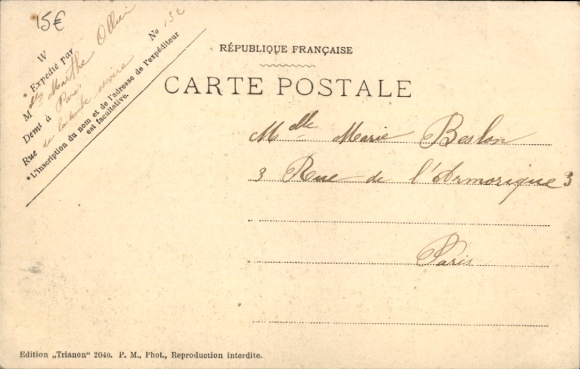 15€
W
* Expédié par
M lle Marthe Ollier
Demt à Paris
Rue de la No 132
*L'inscription du nom et de l'adresse de l'expéditeur
est facultative.
RÉPUBLIQUE FRANÇAISE
CARTE POSTALE
Mlle Marie Beslon
3 Rue de l'Armorique 3
Paris
Edition „Trianon" 2040. P. M., Phot., Reproduction interdite.